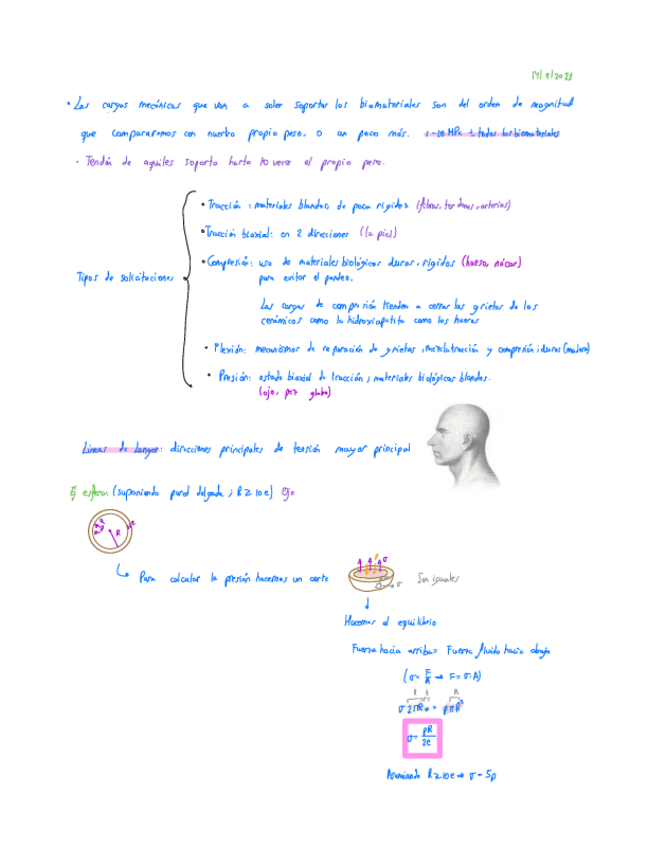 14/9/2023
• Las cargas mecánicas que van a soler soportar los biomateriales son del orden de magnitud
que compararemos con nuestro propio peso, o un poco más. 1-10 MPa todos los biomateriales
- Tendón de aquiles soporta hasta 10 veces el propio peso.
Tipos de solicitaciones
• Tracción: materiales blandos, de poca rigidez (fibras, tendones, arterias)
• Tracción biaxial: en 2 direcciones (la piel)
• Compresión: uso de materiales biológicos duros, rígidos (hueso, nácar)
para evitar el pandeo.
Las cargas de compresión tienden a cerrar las grietas de los
cerámicos como la hidroxiapatita como los huesos
• Flexión: mecanismos de reparación de grietas, mezcla tracción y compresión, duros (madera)
• Presión: estado biaxial de tracción, materiales biológicos blandos.
(ojo, pez globo)
Líneas de Langer: direcciones principales de tensión mayor principal
Ej esfera (suponiendo pared delgada; R ≥ 10e) Ojo
R
e
Para calcular la presión hacemos un corte
σ
σ
Son iguales
Hacemos el equilibrio
Fuerza hacia arriba = Fuerza fluido hacia abajo
(σ = F/A → F = σ·A)
A
σ 2πRe = pπR²
σ = pR/2e
Asumiendo R ≥ 10e → σ = 5p